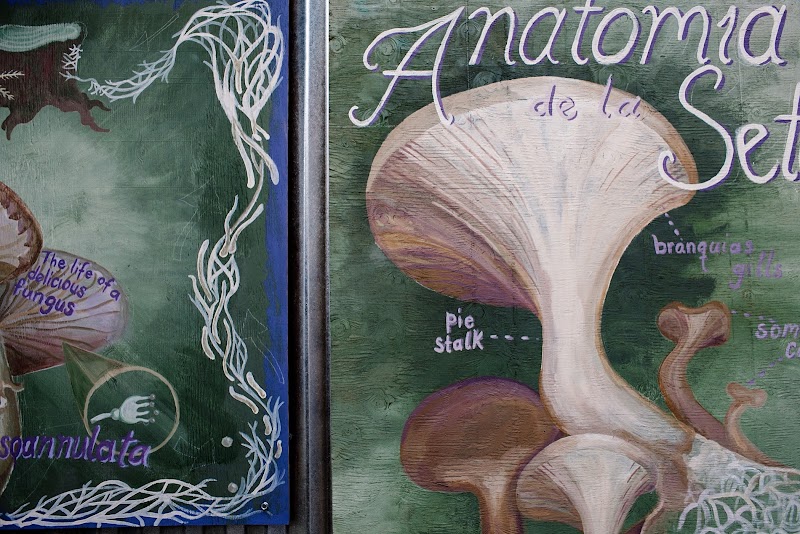 The life of a
delicious
fungus
soannulata
Anatomia
de la
Set
branquias
gills
pie
stalk
som